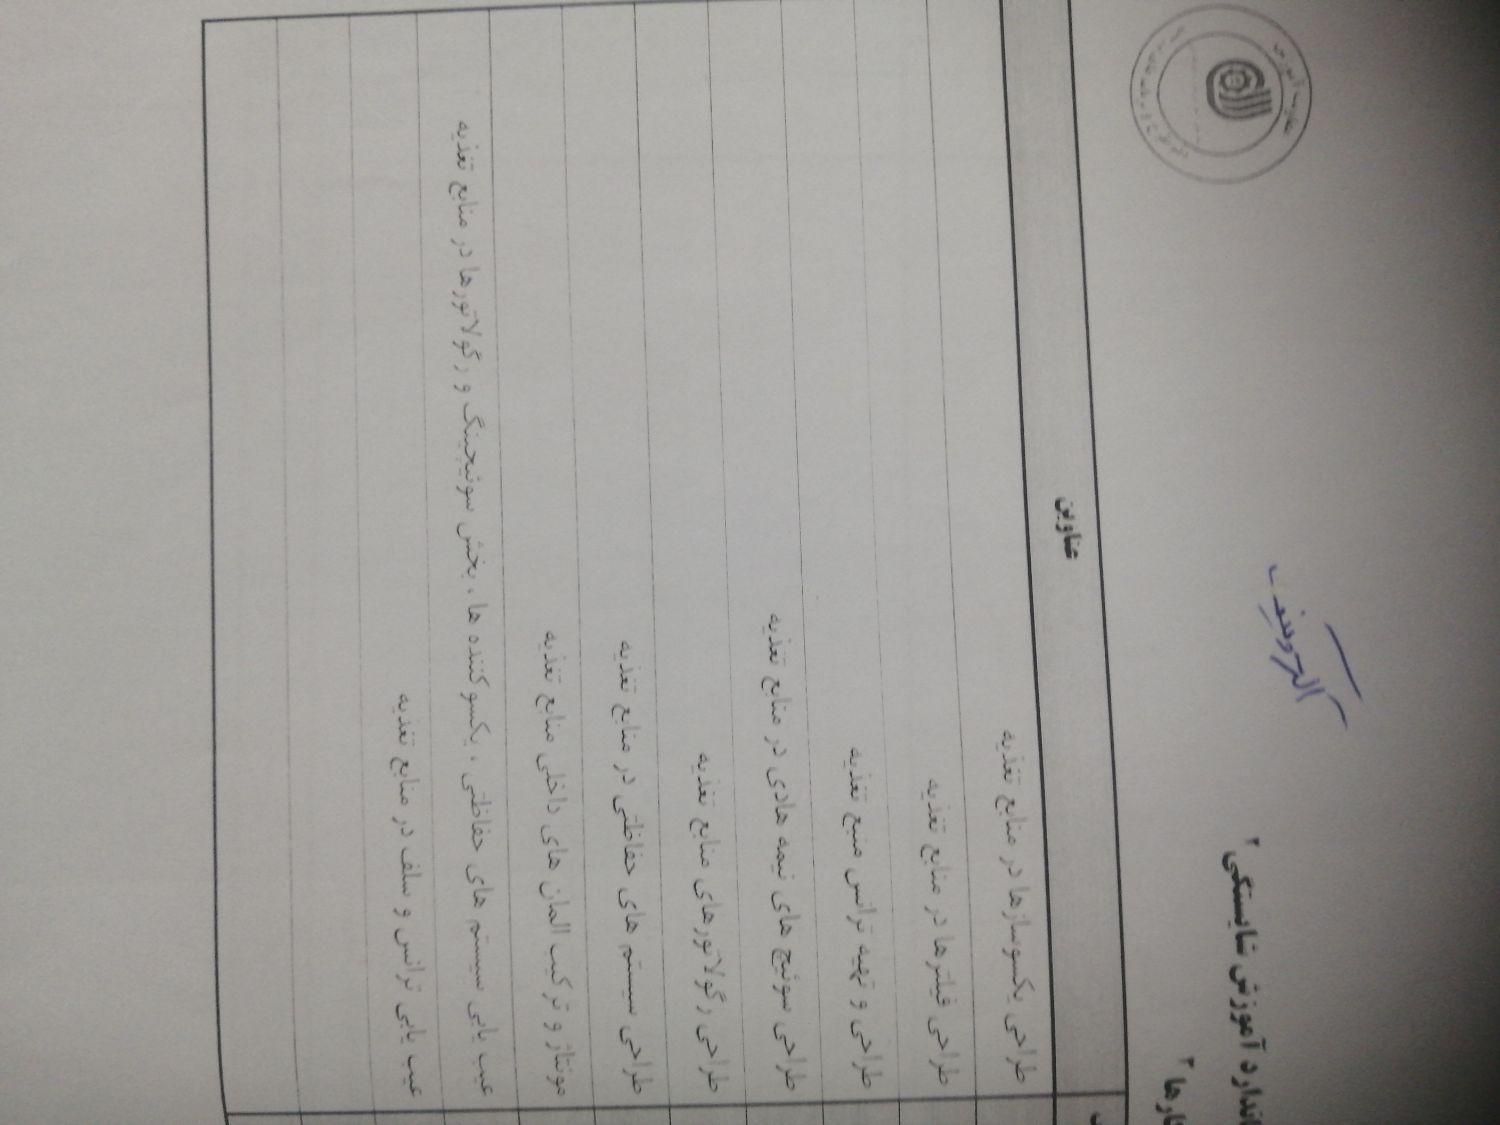 استاندارد آموزش شایستگی ۲
کارها ۳
عناوین
طراحی یکسوسازها در منابع تغذیه
طراحی فیلترها در منابع تغذیه
طراحی و تهیه ترانس منبع تغذیه
طراحی سوئیچ های نیمه هادی در منابع تغذیه
طراحی رگولاتورهای منابع تغذیه
طراحی سیستم های حفاظتی در منابع تغذیه
مونتاژ و ترکیب المان های داخلی منابع تغذیه
عیب یابی سیستم های حفاظتی ، یکسو کننده ها ، بخش سوئیچینگ و رگولاتورها در منابع تغذیه
عیب یابی ترانس و سلف در منابع تغذیه